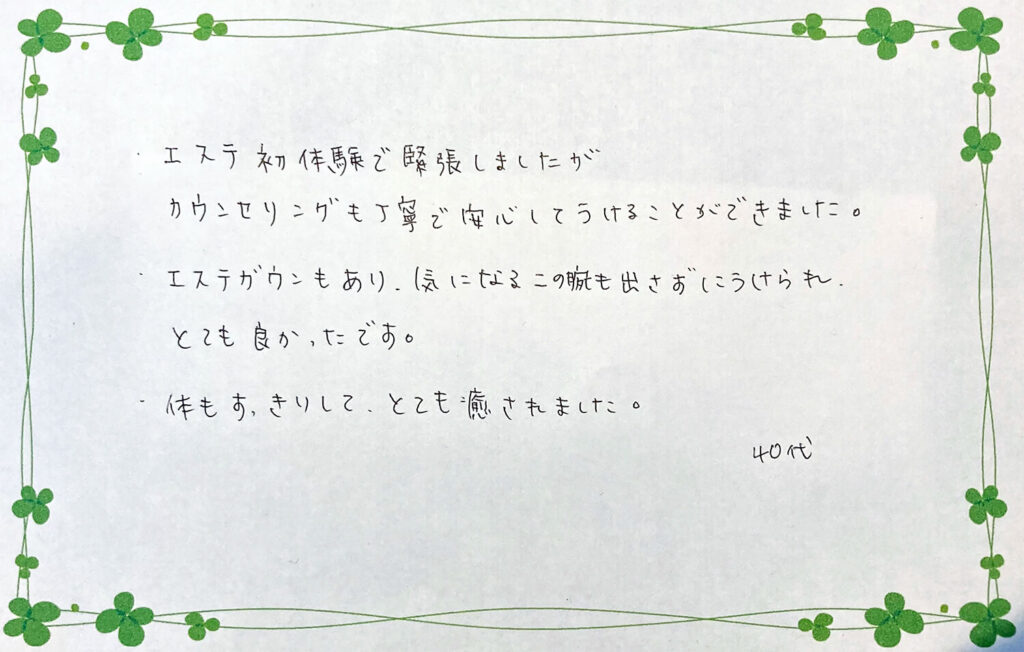 ・エステ初体験で緊張しましたが
カウンセリングも丁寧で安心してうけることができました。
・エステガウンもあり、気になる二の腕も出さずにうけられ、
とても良かったです。
・体もすっきりして、とても癒されました。
40代